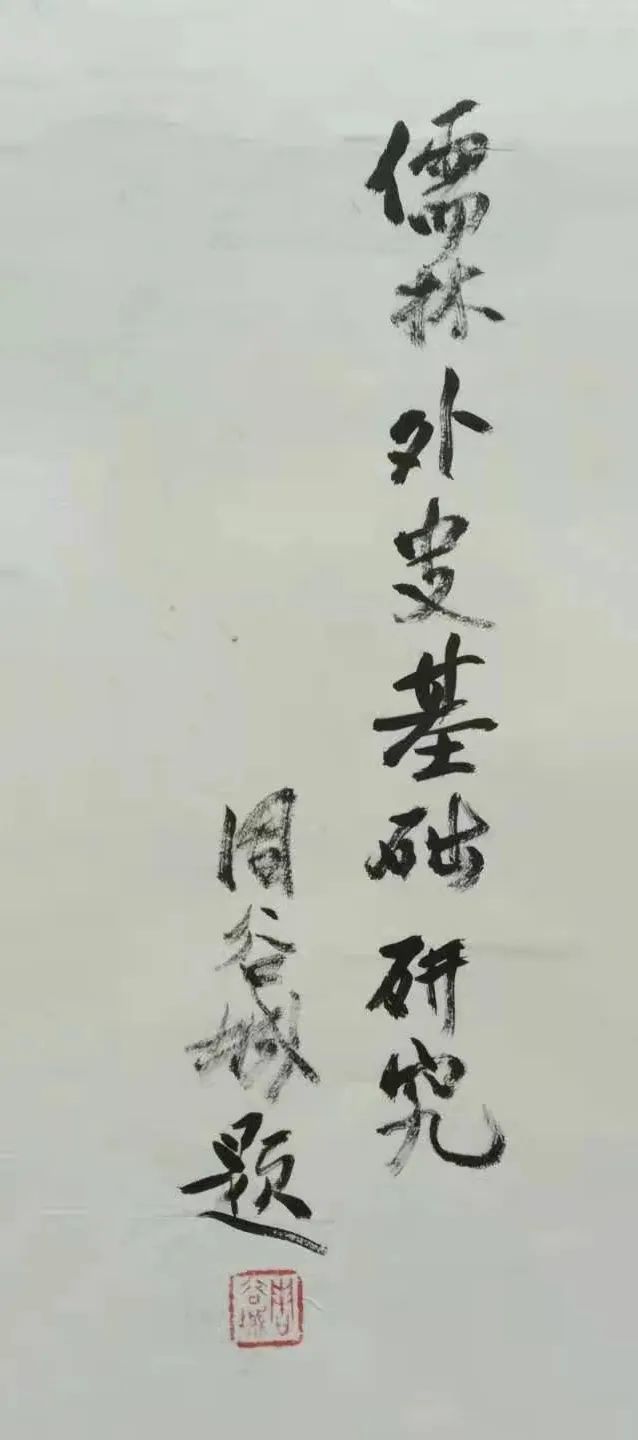 儒林外史基础研究
周谷城题
周谷城